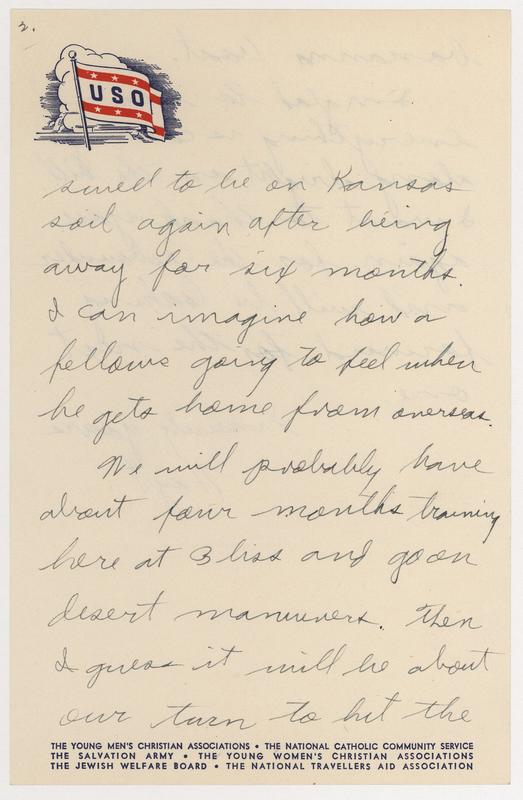 2.
USO
swell to be on Kansas
soil again after being
away for six months.
I can imagine how a
fellows going to feel when
he gets home from overseas.
We will probably have
about four months training
here at Bliss and go on
desert manuvers. Then
I guess it will be about
our turn to hit the
THE YOUNG MEN'S CHRISTIAN ASSOCIATIONS • THE NATIONAL CATHOLIC COMMUNITY SERVICE
THE SALVATION ARMY • THE YOUNG WOMEN'S CHRISTIAN ASSOCIATIONS
THE JEWISH WELFARE BOARD • THE NATIONAL TRAVELLERS AID ASSOCIATION